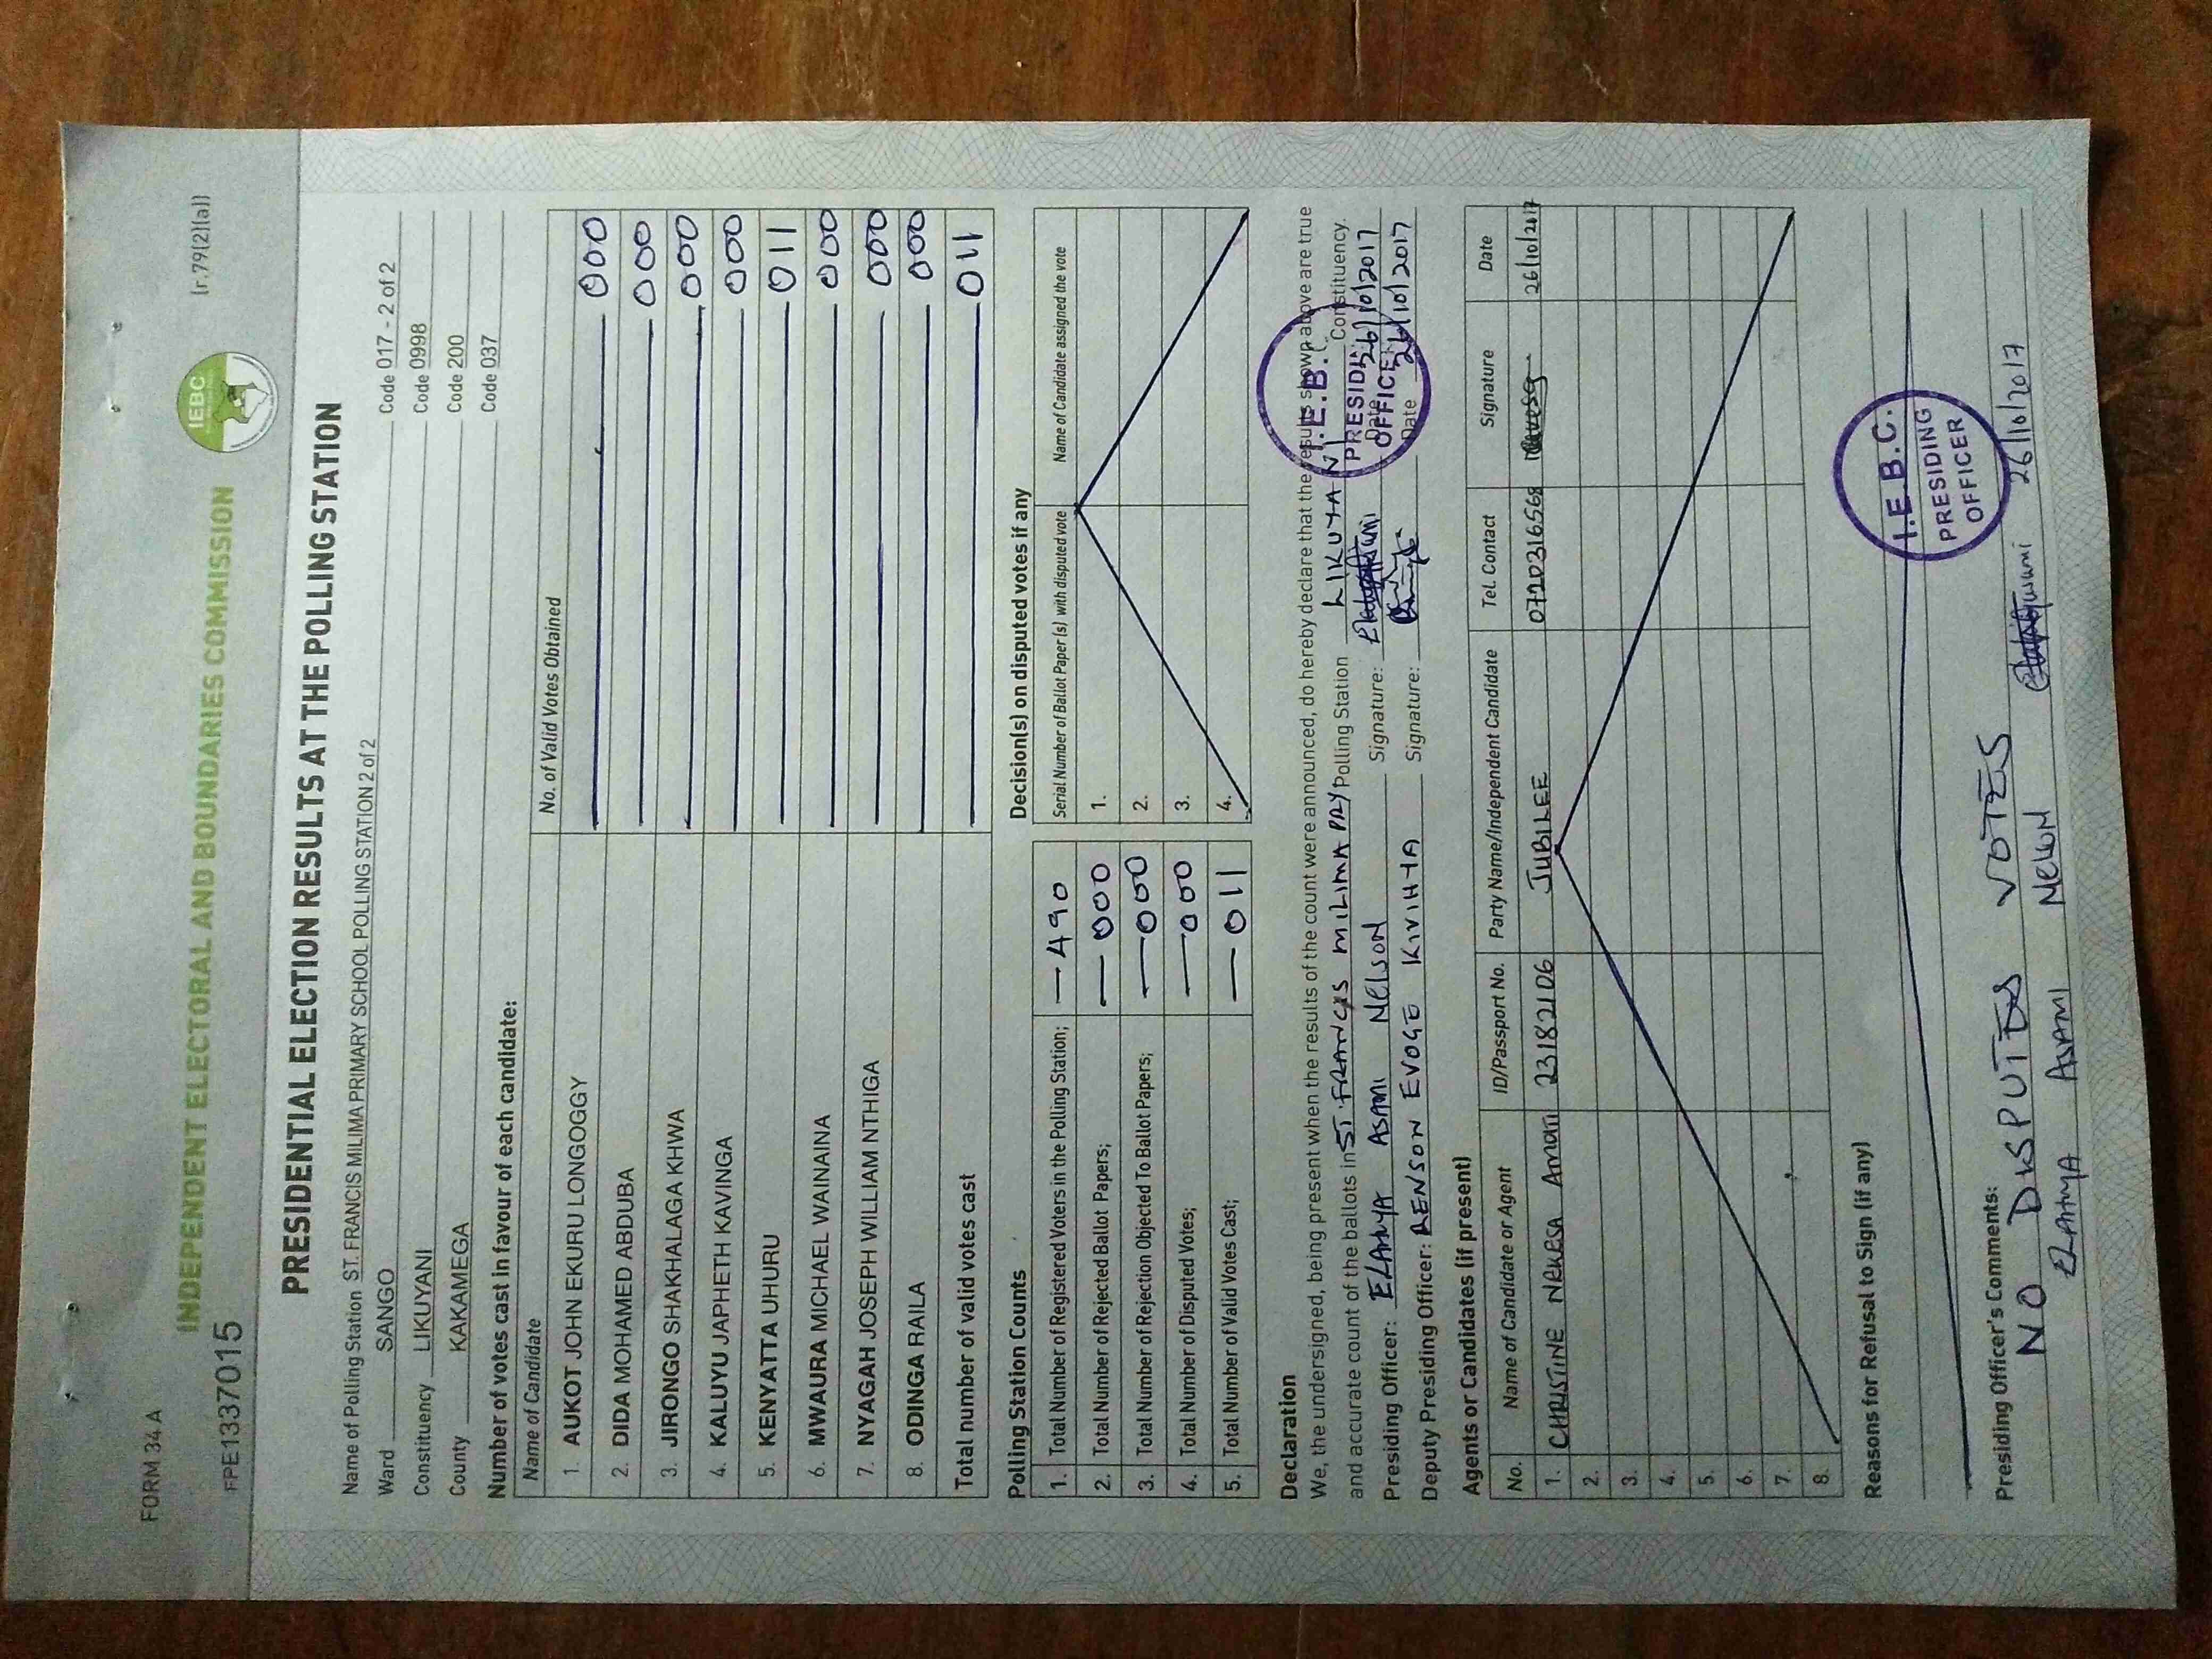 FORM 34 A
(r.79(2)(a))
IEBC
INDEPENDENT ELECTORAL AND BOUNDARIES COMMISSION
FPE1337015
PRESIDENTIAL ELECTION RESULTS AT THE POLLING STATION
Name of Polling Station ST. FRANCIS MILIMA PRIMARY SCHOOL POLLING STATION 2 of 2 Code 017 - 2 of 2
Ward SANGO Code 0998
Constituency LIKUYANI Code 200
County KAKAMEGA Code 037
Number of votes cast in favour of each candidate:
Name of Candidate No. of Valid Votes Obtained
1. AUKOT JOHN EKURU LONGOGGY 000
2. DIDA MOHAMED ABDUBA 000
3. JIRONGO SHAKHALAGA KHWA 000
4. KALUYU JAPHETH KAVINGA 000
5. KENYATTA UHURU 011
6. MWAURA MICHAEL WAINAINA 000
7. NYAGAH JOSEPH WILLIAM NTHIGA 000
8. ODINGA RAILA 000
Total number of valid votes cast 011
Polling Station Counts
1. Total Number of Registered Voters in the Polling Station; 490
2. Total Number of Rejected Ballot Papers; 000
3. Total Number of Rejection Objected To Ballot Papers; 000
4. Total Number of Disputed Votes; 000
5. Total Number of Valid Votes Cast; 011
Decision(s) on disputed votes if any
Serial Number of Ballot Paper(s) with disputed vote Name of Candidate assigned the vote
1.
2.
3.
4.
Declaration
We, the undersigned, being present when the results of the count were announced, do hereby declare that the results shown above are true
and accurate count of the ballots in ST. FRANCIS MILIMA PRY Polling Station LIKUYANI Constituency.
Presiding Officer: ELAMYA ASAMI NELSON Signature: Date 26/10/2017
Deputy Presiding Officer: RENSON EVOGE KIVIHTA Signature: Date 26/10/2017
I.E.B.C.
PRESIDING
OFFICER
Agents or Candidates (if present)
No. Name of Candidate or Agent ID/Passport No. Party Name/Independent Candidate Tel. Contact Signature Date
1. CHRISTINE NEKESA AMANI 23182106 JUBILEE 0720316568 26/10/2017
2.
3.
4.
5.
6.
7.
8.
Reasons for Refusal to Sign (if any)
I.E.B.C.
PRESIDING
OFFICER
Presiding Officer's Comments:
NO DISPUTED VOTES
ELAMYA ASAMI NELSON 26/10/2017